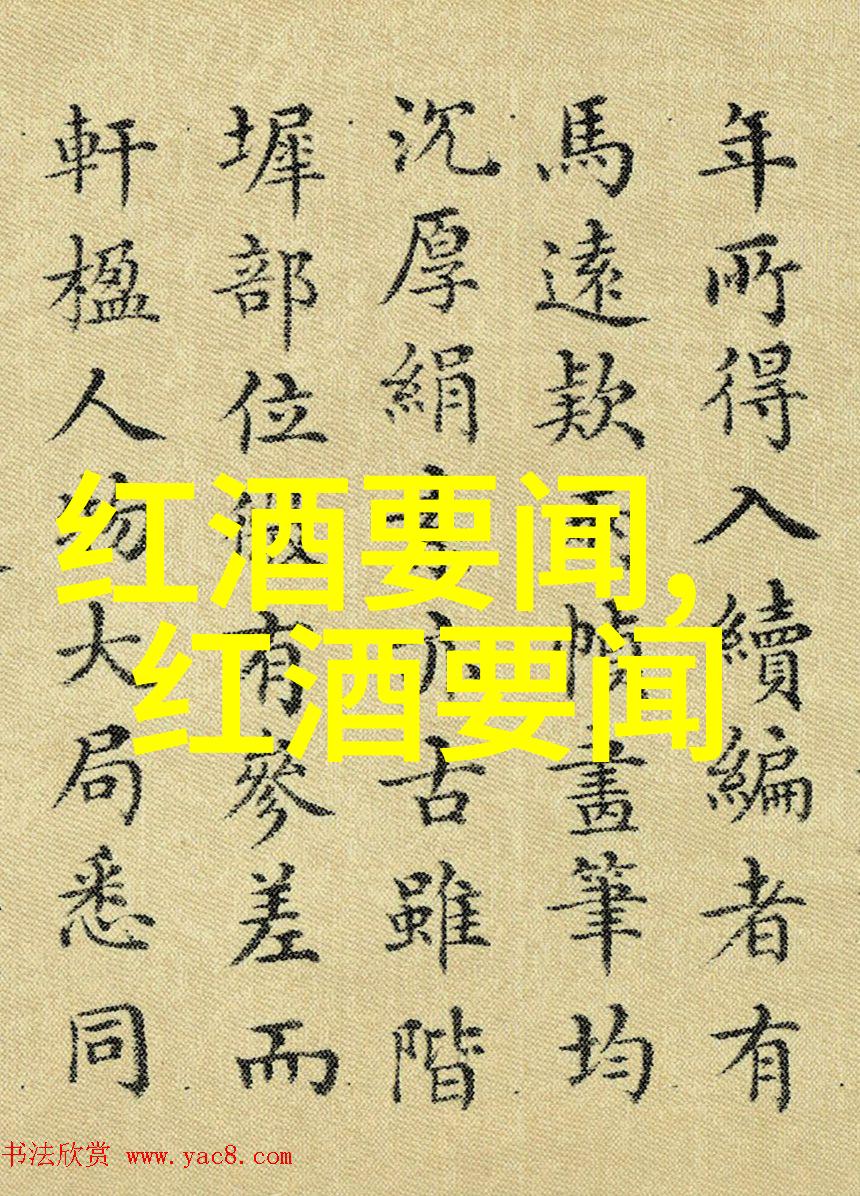 年所得入續編者有
馬遠款兩幀畫筆均
沉厚絹素亦古雖階
墀部位微有參差而
軒楹人物大局悉同
红酒要闻,
红酒要闻
书法欣赏 www.yac8.com